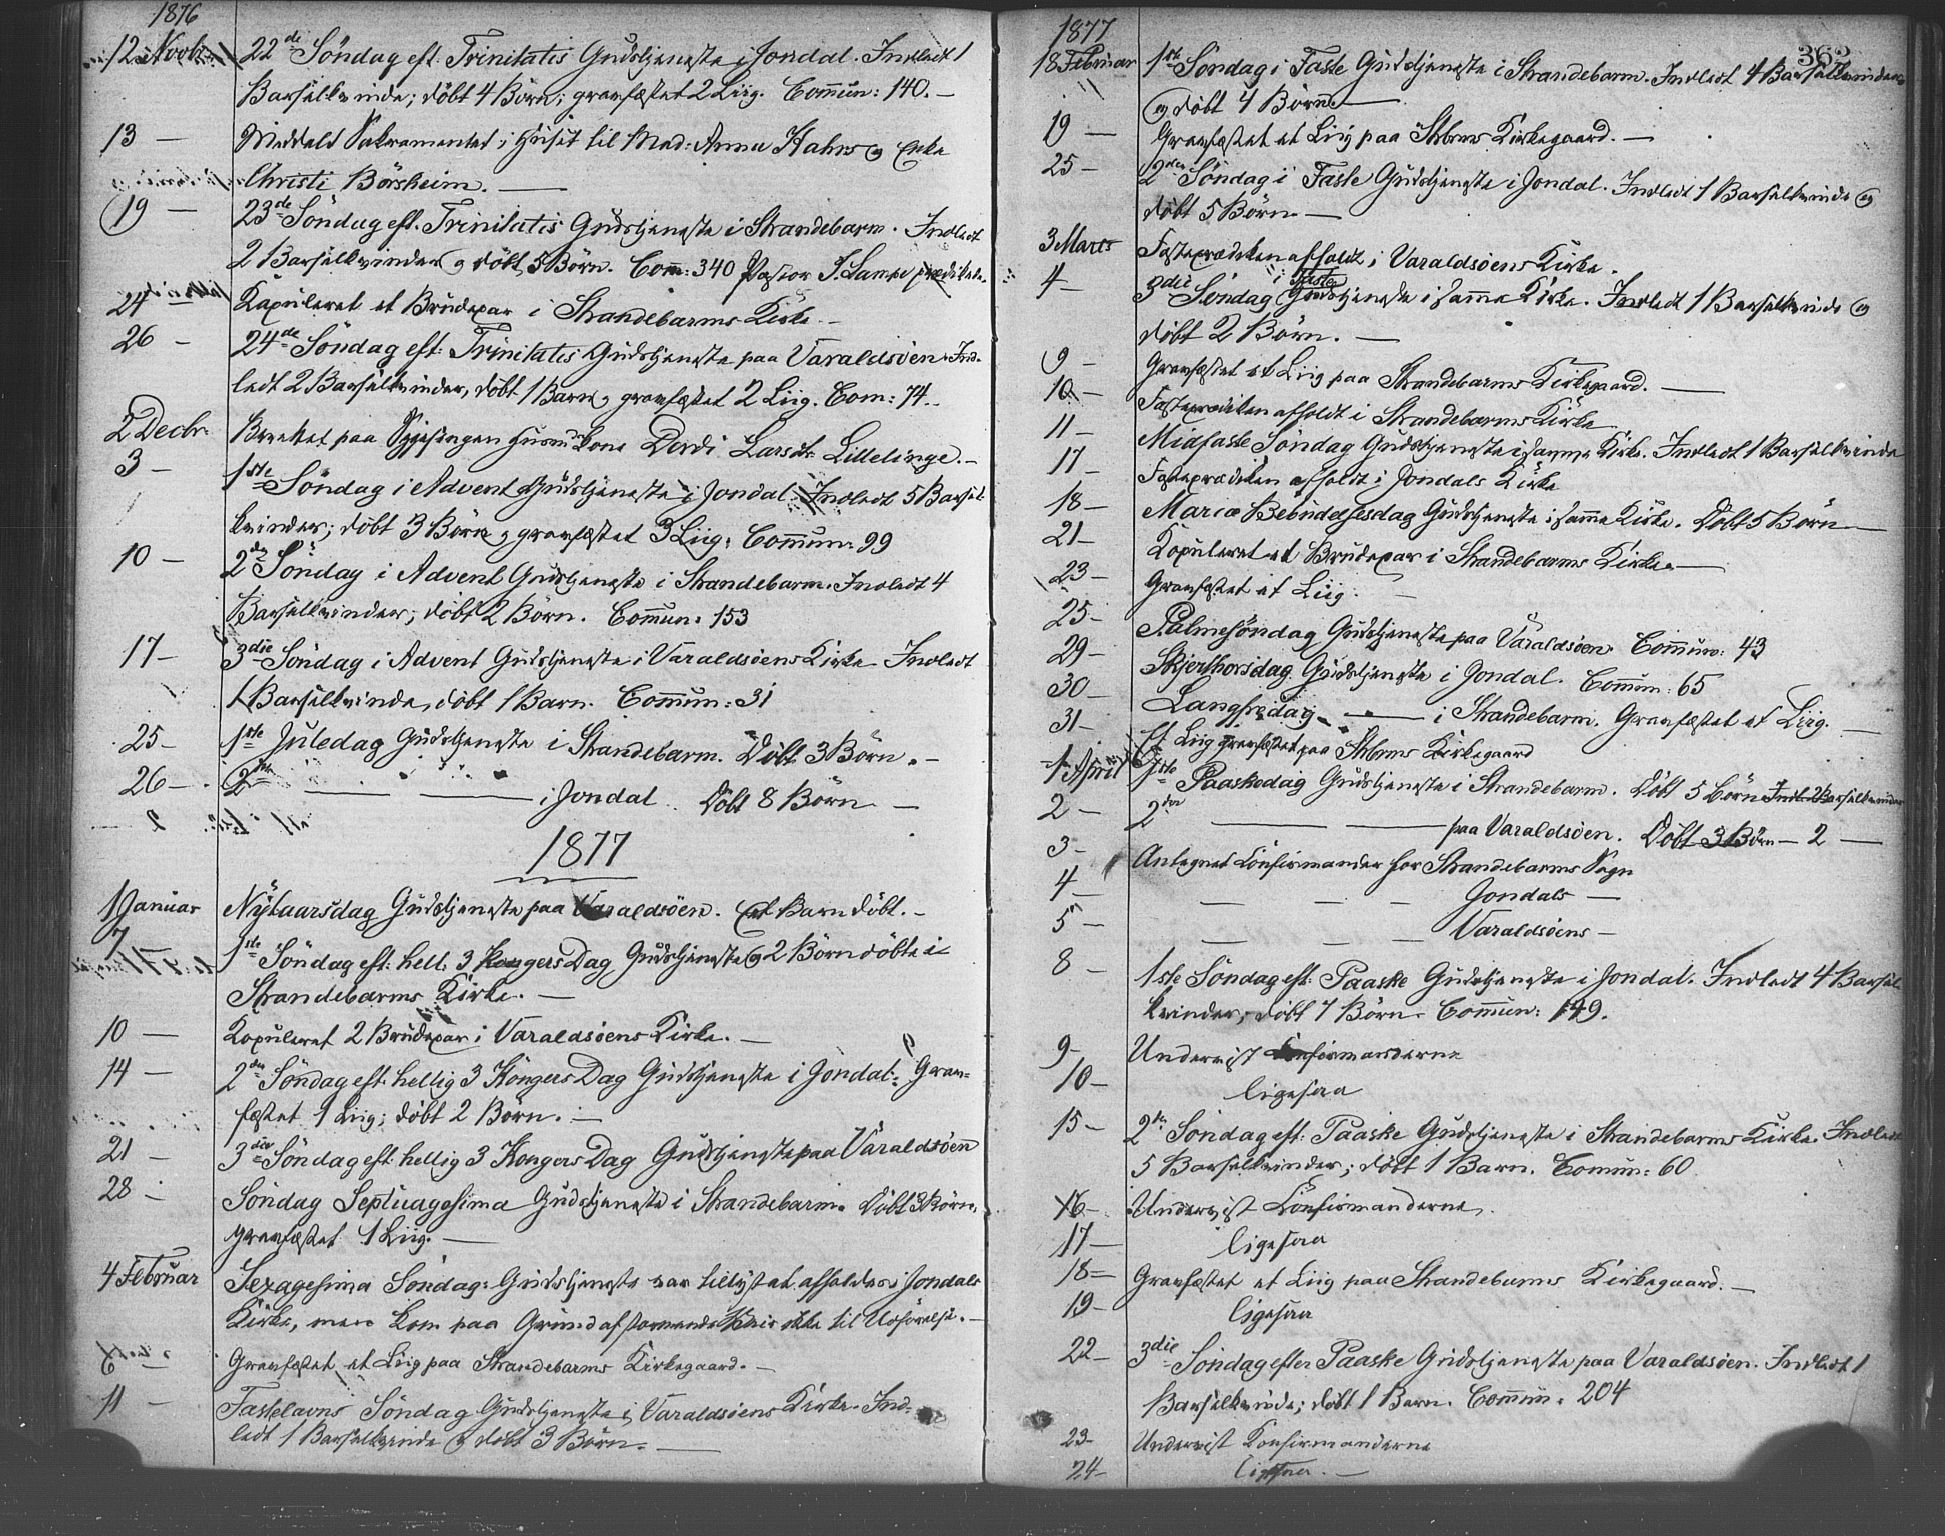 1876
12 Novbr. 22de Söndag eft. Trinitatis Gudstjeneste i Jondal. Indledt 1
Barselkvinde; döbt 4 Börn; gravfæstet 2 Liig. Com̄un: 140. —
13 — Meddelt Sakramentet i Huset til Mad: Anna Hahn og Enke
Christi Börsheim. —
19 — 23de Söndag eft. Trinitatis Gudstjeneste i Strandebarm. Indledt
2 Barselkvinder og döbt 5 Börn. Com̄: 340 Pastor J. Lampe prædikede.
24 Kopuleret et Brudepar i Strandebarms Kirke. —
26 — 24de Söndag eft: Trinitatis Gudstjeneste paa Varaldsöen. Ind-
ledt 2 Barselkvinder, döbt 1 Barn og gravfæstet 2 Liig. Com: 74. —
2 Decbr. Berettet paa Sygesengen Huusm: Kone Dordi Larsdt. Lillelinge. —
3 — 1ste Söndag i Advent Gudstjeneste i Jondal. Indledt 5 Barsel-
kvinder; döbt 3 Börn og gravfæstet 3 Liig. Com̄un: 99
10 — 2den Söndag i Advent Gudstjeneste i Strandebarm. Indledt 4
Barselkvinder; döbt 2 Börn. Com̄un: 153
17 — 3die Söndag i Advent Gudstjeneste i Varaldsöens Kirke Indledt
1 Barselkvinde, döbt 1 Barn. Com̄un: 31
25 — 1ste Juledag Gudstjeneste i Strandebarm. Döbt 3 Börn. —
26 — 2den — — i Jondal. Döbt 8 Börn —
1877
1 Januar Nÿtaarsdag Gudstjeneste paa Varaldsöen. Et Barn döbt. —
7 1ste Söndag eft: hell. 3 Kongers Dag Gudstjeneste og 2 Börn döbte i
Strandebarms Kirke. —
10 — Kopuleret 2 Brudepar i Varaldsöens Kirke. —
14 — 2den Söndag eft: hellig 3 Kongers Dag Gudstjeneste i Jondal. Grav-
fæstet 1 Liig; döbt 2 Börn. —
21 — 3die Söndag eft. hellig 3 Kongers Dag Gudstjeneste paa Varaldsöen
28 — Söndag Septuagesima Gudstjeneste i Strandebarm. Döbt 3 Börn,
gravfæstet 1 Liig. —
4 Februar Sexagesima Söndag: Gudstjeneste var tillyst at afholdes i Jondals
Kirke, men kom paa Grund af stormende Veir ikke til Udförelse. —
6 Gravfæstet et Liig paa Strandebarms Kirkegaard. —
11 — Fastelavns Söndag Gudstjeneste i Varaldsöens Kirke. Ind-
ledt 1 Barselkvinde og döbt 3 Börn. —
1877
363
18 Februar 1ste Söndag i Faste Gudstjeneste i Strandebarm. Indledt 4 Barselkvinder
og döbt 4 Börn. —
19 — Gravfæstet et Liig paa Stbrms Kirkegaard. —
25 — 2den Söndag i Faste Gudstjeneste i Jondal. Indledt 1 Barselkvinde og
döbt 5 Börn. —
3 Marts Fasteprædiken afholdt i Varaldsöens Kirke.
4 — 3die Söndag i Faste Gudstjeneste i samme Kirke. Indledt 1 Barselkvinde og
döbt 2 Börn. —
9 — Gravfæstet et Liig paa Strandebarms Kirkegaard. —
10 — Fasteprædiken afholdt i Strandebarms Kirke
11 — Midfaste Söndag Gudstjeneste i samme Kirke. Indledt 1 Barselkvinde
17 — Fasteprædiken afholdt i Jondals Kirke
18 — Mariæ Bebudelsesdag Gudstjeneste i samme Kirke. Döbt 5 Börn —
21 — Kopuleret et Brudepar i Strandebarms Kirke. —
23 — Gravfæstet et Liig. —
25 — Palmesöndag Gudstjeneste paa Varaldsöen. Com̄un: 43
29 — Skjerthorsdag Gudstjeneste i Jondal. Com̄un: 65
30 — Langfredag — i Strandebarm. Gravfæstet et Liig. —
31 — Et Liig gravfæstet paa Stbrms Kirkegaard
1 April 1ste Paaskedag Gudstjeneste i Strandebarm. Döbt 5 Börn Indl. 2 Barselkvinder
2 — 2den — — paa Varaldsöen. Döbt 3 Börn — 2 —
3 — Antegnet Confirmander for Strandebarms Sogn
4 — — — — Jondals —
5 — — — — Varaldsöens —
8 — 1ste Söndag eft: Paaske Gudstjeneste i Jondal. Indledt 4 Barsel-
kvinder, döbt 7 Börn. Com̄un: 149.
9 — Underviist Confirmanderne
10 — ligesaa
15 — 2den Söndag eft. Paaske Gudstjeneste i Strandebarms Kirke. Indledt
5 Barselkvinder; döbt 1 Barn. Com̄un: 60
16 — Underviist Confirmanderne.
17 — ligesaa
18 — Gravfæstet et Liig paa Strandebarms Kirkegaard. —
19 — ligesaa
22 — 3die Söndag efter Paaske Gudstjeneste paa Varaldsöen. Indledt 1
Barselkvinde; döbt 1 Barn. Com̄un: 204
23 — Underviist Konfirmanderne
24 — ligesaa. —